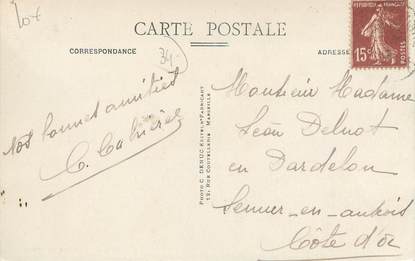 207
CARTE POSTALE
34
CORRESPONDANCE
ADRESSE
RÉPUBLIQUE FRANÇAISE
15c
POSTES
Nos bonnes amitiés
PHOTO C. DENUC EDITEUR FABRICANT
RUE COUTELLERIE MARSEILLE
Monsieur Madame
Léon
en Dardelon
Semur-en-auxois
Côte d'Or